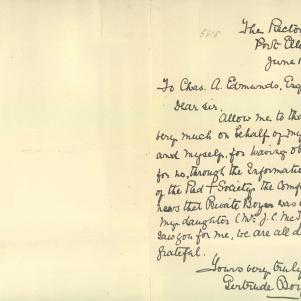 5818
The Rector
Port Ell
June 1
To Chas. A. Edmunds, Esq
Dear Sir,
Allow me to tha
very much on behalf of my
and myself, for having ob
for us, through the Informatio
of the Red + Society, the comf
news that Private Boyer was
my daughter (Mrs J. C. McI
saw you for me, we are all d
grateful.
Yours very truly
Gertrude Boy